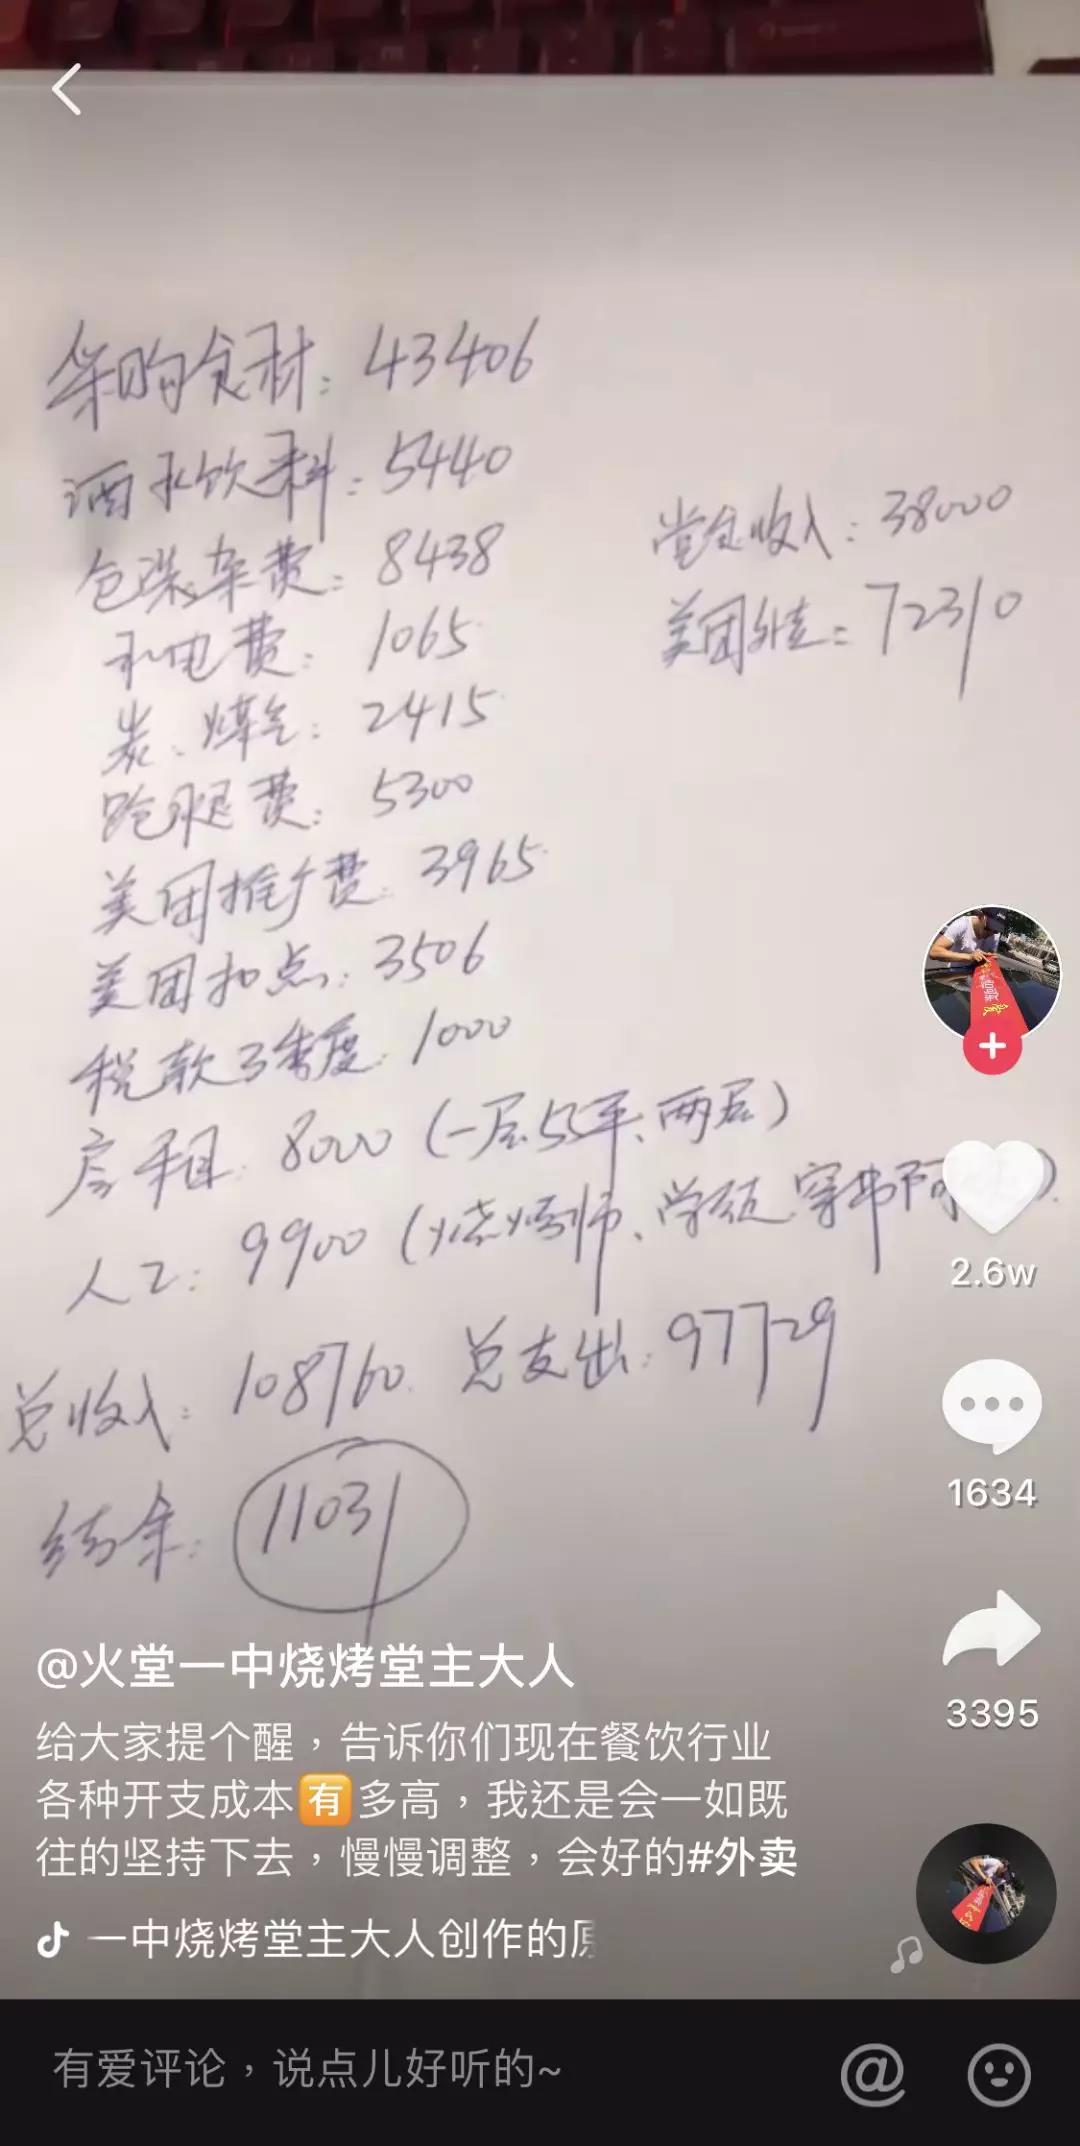 采购食材：43406
酒水饮料：5440
包装杂费：8438
水电费：1065
炭、煤气：2415
跑腿费：5300
美团推广费：3965
美团扣点：3506
税款季度：1000
房租：8000（一层55平、两层）
人工：9900（烧烤师、学徒、穿串阿
堂食收入：38000
美团外卖：72310
总收入：108760 总支出：97729
结余：11031
2.6w
1634
3395
@火堂一中烧烤堂主大人
给大家提个醒，告诉你们现在餐饮行业
各种开支成本有多高，我还是会一如既
往的坚持下去，慢慢调整，会好的#外卖
一中烧烤堂主大人创作的原
有爱评论，说点儿好听的~